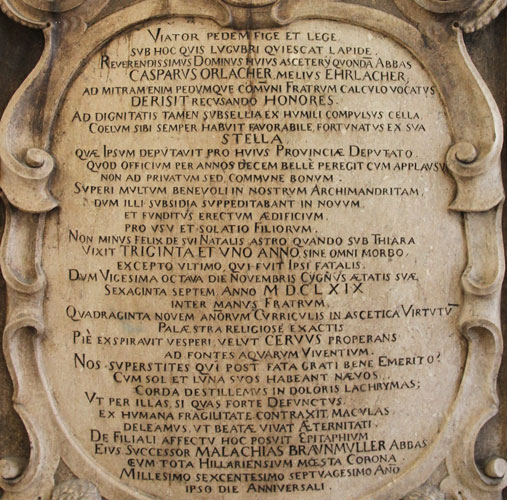 VIATOR PEDEM FIGE ET LEGE
SVB HOC QUIS LVGVBRI QVIESCAT LAPIDE.
REVERENDISSIMVS DOMINVS HVIVS ASCETERY QVONDĀ ABBAS
CASPARVS ORLACHER, MELIVS EHRLACHER,
AD MITRAM ENIM PEDVMQVE COMVNI FRATRUM CALCVLO VOCATVS
DERISIT RECUSANDO HONORES.
AD DIGNITATIS TAMEN SVBSELLIA EX HVMILI COMPVLSVS CELLA,
COELVM SIBI SEMPER HABVIT FAVORABILE, FORTVNATVS EX SVA
STELLA,
QVÆ IPSVM DEPVTAVIT PRO HVIVS PROVINCIÆ DEPVTATO,
QVOD OFFICIVM PER ANNOS DECEM BELLÈ PEREGIT CVM APPLAVSV
NON AD PRIVATVM SED COMMVNE BONVM.
SVPERI MVLTVM BENEVOLI IN NOSTRVM ARCHIMANDRITAM,
DVM ILLI SVBSIDIA SVPPEDITABANT IN NOVVM,
ET FVNDITVS ERECTVM ÆDIFICIVM,
PRO VSV ET SOLATIO FILIORVM.
NON MINVS FELIX DE SVI NATALIS ASTRO QVANDO SVB THIARA
VIXIT TRIGINTA ET VNO ANNO, SINE OMNI MORBO,
EXCEPTO VLTIMO, QVI FVIT IPSI FATALIS.
DVM VIGESIMA OCTAVA DIE NOVEMBRIS CYGNVS ÆTATIS SVÆ
SEXAGINTA SEPTEM, ANNO MDCLXIX
INTER MANVS FRATRVM,
QVADRAGINTA NOVEM AÑORVM CVRRICVLIS IN ASCETICA VIRTVTV̄
PALÆSTRA RELIGIOSÈ EXACTIS
PIÈ EXSPIRAVIT VESPERI, VELVT CERVVS PROPERANS
AD FONTES AQVARVM VIVENTIVM.
NOS SVPERSTITES QVI POST FATA GRATI BENE EMERITO?
CVM SOL ET LVNA SVOS HABEANT NÆVOS
CORDA DESTILLEMVS IN DOLORIS LACHRYMAS;
VT PER ILLAS, SI QVAS FORTE DEFVNCTVS,
EX HVMANA FRAGILITATE CONTRAXIT, MACVLAS
DELEAMVS, VT BEATÆ VIVAT ÆTERNITATI.
DE FILIALI AFFECTV HOC POSVIT EPITAPHIVM
EIVS SVCCESSOR MALACHIAS BRAVNMVLLER ABBAS
CVM TOTA HILLARIENSIVM MŒSTA CORONA
MILLESIMO SEXCENTESIMO SEPTVAGESIMO AÑO
IPSO DIE ANNIVERSALI.